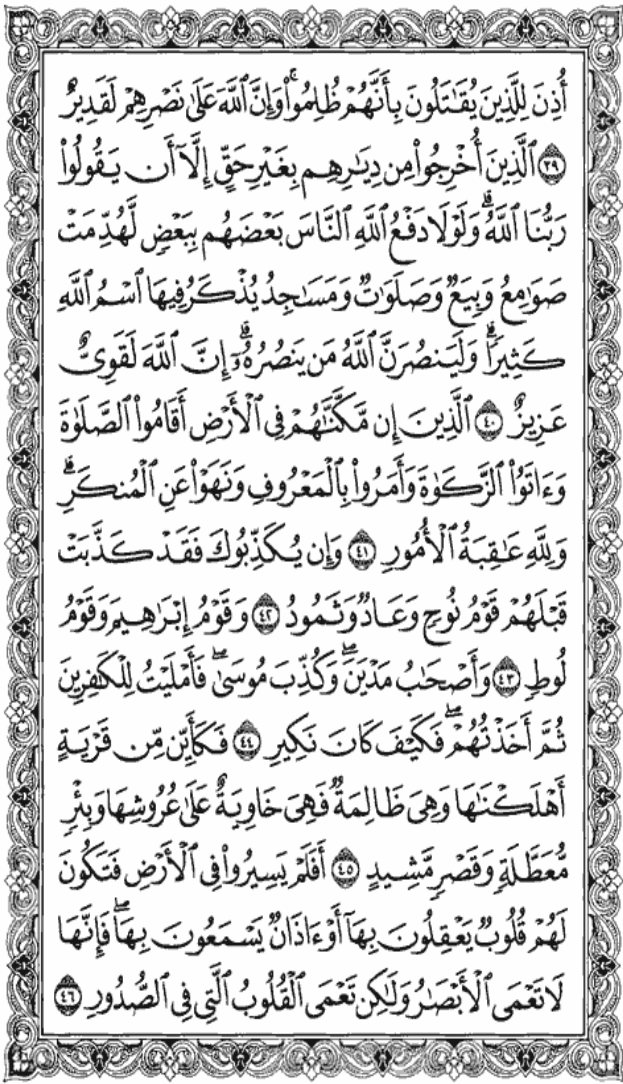 أُذِنَ لِلَّذِينَ يُقَٰتَلُونَ بِأَنَّهُمْ ظُلِمُوا۟ ۚ وَإِنَّ ٱللَّهَ عَلَىٰ نَصْرِهِمْ لَقَدِيرٌ
٣٩ ٱلَّذِينَ أُخْرِجُوا۟ مِن دِيَٰرِهِم بِغَيْرِ حَقٍّ إِلَّآ أَن يَقُولُوا۟
رَبُّنَا ٱللَّهُ ۗ وَلَوْلَا دَفْعُ ٱللَّهِ ٱلنَّاسَ بَعْضَهُم بِبَعْضٍ لَّهُدِّمَتْ
صَوَٰمِعُ وَبِيَعٌ وَصَلَوَٰتٌ وَمَسَٰجِدُ يُذْكَرُ فِيهَا ٱسْمُ ٱللَّهِ
كَثِيرًا ۗ وَلَيَنصُرَنَّ ٱللَّهُ مَن يَنصُرُهُۥٓ ۗ إِنَّ ٱللَّهَ لَقَوِىٌّ
عَزِيزٌ ٤٠ ٱلَّذِينَ إِن مَّكَّنَّٰهُمْ فِى ٱلْأَرْضِ أَقَامُوا۟ ٱلصَّلَوٰةَ
وَءَاتَوُا۟ ٱلزَّكَوٰةَ وَأَمَرُوا۟ بِٱلْمَعْرُوفِ وَنَهَوْا۟ عَنِ ٱلْمُنكَرِ ۗ
وَلِلَّهِ عَٰقِبَةُ ٱلْأُمُورِ ٤١ وَإِن يُكَذِّبُوكَ فَقَدْ كَذَّبَتْ
قَبْلَهُمْ قَوْمُ نُوحٍ وَعَادٌ وَثَمُودُ ٤٢ وَقَوْمُ إِبْرَٰهِيمَ وَقَوْمُ
لُوطٍ ٤٣ وَأَصْحَٰبُ مَدْيَنَ ۖ وَكُذِّبَ مُوسَىٰ ۖ فَأَمْلَيْتُ لِلْكَٰفِرِينَ
ثُمَّ أَخَذْتُهُمْ ۖ فَكَيْفَ كَانَ نَكِيرِ ٤٤ فَكَأَيِّن مِّن قَرْيَةٍ
أَهْلَكْنَٰهَا وَهِىَ ظَالِمَةٌ فَهِىَ خَاوِيَةٌ عَلَىٰ عُرُوشِهَا وَبِئْرٍ
مُّعَطَّلَةٍ وَقَصْرٍ مَّشِيدٍ ٤٥ أَفَلَمْ يَسِيرُوا۟ فِى ٱلْأَرْضِ فَتَكُونَ
لَهُمْ قُلُوبٌ يَعْقِلُونَ بِهَآ أَوْ ءَاذَانٌ يَسْمَعُونَ بِهَا ۖ فَإِنَّهَا
لَا تَعْمَى ٱلْأَبْصَٰرُ وَلَٰكِن تَعْمَى ٱلْقُلُوبُ ٱلَّتِى فِى ٱلصُّدُورِ ٤٦